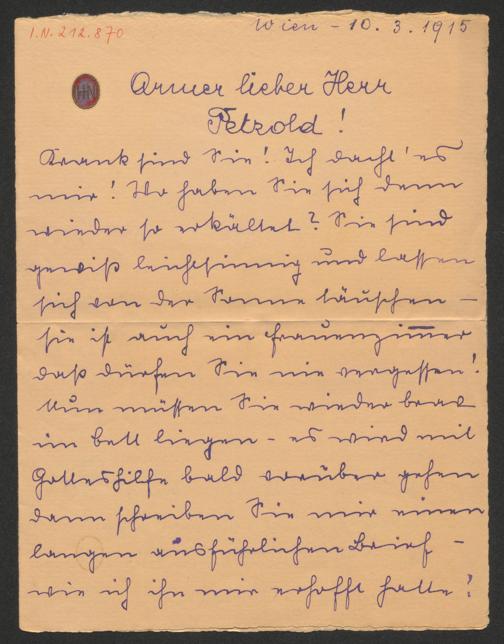 I.N. 212.870
Wien – 10. 3. 1915
HN
Armer lieber Herr
Petzold!
Krank sind Sie! Ich dacht' es
mir! Wo haben Sie sich denn
wieder so erkältet? Sie sind
gewiß leichtsinnig und lassen
sich von der Sonne täuschen –
sie ist auch ein Frauenzim̅er
daß dürfen Sie nie vergessen!
Nun müssen Sie wieder brav
im Bett liegen – es wird mit
Gotteshilfe bald vorüber gehen
dann schreiben Sie mir einen
langen ausführlichen Brief –
wie ich ihn mir erhofft hatte!